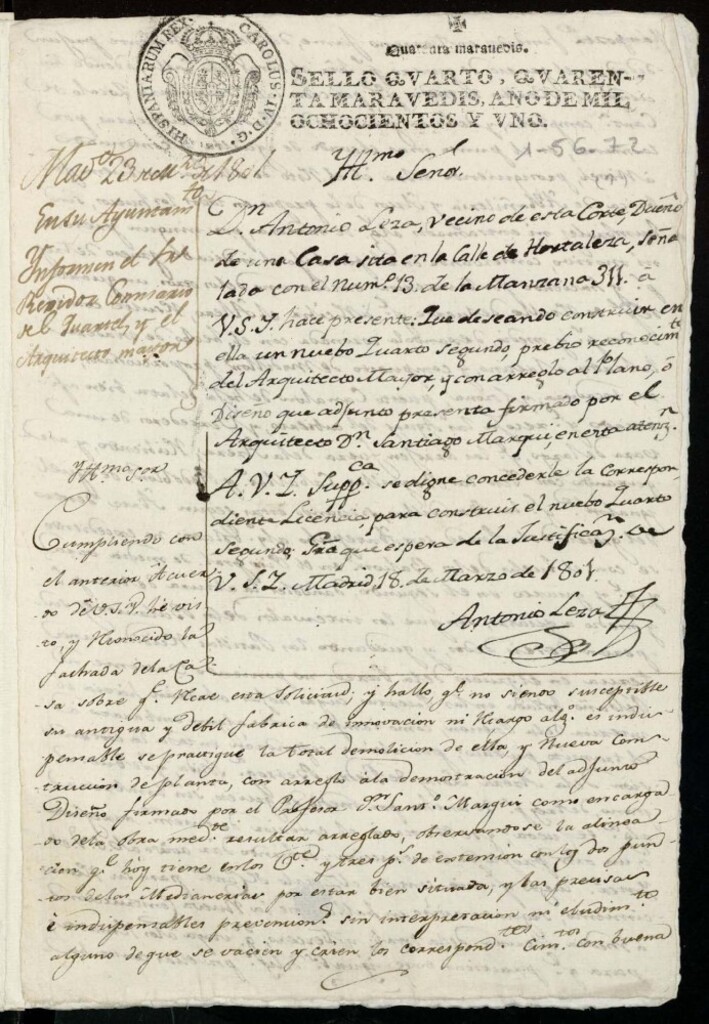 HISPANIARUM REX. CAROLUS. IV. D. G.
Quarenta maravedis.
SELLO QVARTO, QVAREN-
TA MARAVEDIS, AÑO DE MIL
OCHOCIENTOS Y VNO.
1-56-72
Mad. 23 de Mzo de 1801
En su Ayuntam.to
Informen el Sr
Rexidor Comisario
del Quartel, y el
Arquitecto mayor
Yll.mo Señor.
Dn. Antonio Leza, vecino de esta Corte, Dueño
de una Casa sita en la Calle de Hortaleza, seña
lada con el num.o 13. de la Manzana 311. a
V.S.I. hace presente: Que deseando construir en
ella un nuebo Quarto segundo, prebio reconocim.to
del Arquitecto Mayor, y con arreglo al Plano, ó
Diseño que adjunto presenta firmado por el
Arquitecto Dn. Santiago Marqui, en esta atenz.n
A. V. I. Supp.ca se digne concederle la correspon
diente Licencia para construir el nuebo Quarto
segundo; Gra que espera de la Justificaz.n de
V. S. I. Madrid 18. de Marzo de 1801.
Antonio Leza
Yll.mo Sor
Cumpliendo con
el anterior Acuer
do de V.S.I. he vis
to, y Reconocido la
fachada de la Ca
sa sobre q.e Recae esta solicitud; y hallo q.e no siendo susceptible
su antigua y debil fabrica de innovacion ni Recargo alg.o es indis
pensable se practique la total demolicion de ella, y Nueva Cons
truccion de planta, con arreglo a la demostracion del adjunto
Diseño firmado por el Profesor Dn. Sant.o Marqui como encarga
do de la obra med.te resultar arreglado, observandose la alinea
cion q.e hoy tiene en los y tres p.s de extension con los dos pun
tos de las Medianerias por estar bien situada, y las precisas
é indispensables prevencion.s sin interpretacion ni eludim.to
alguno de que se vacien y crien los correspond.tes Cim.tos con buena